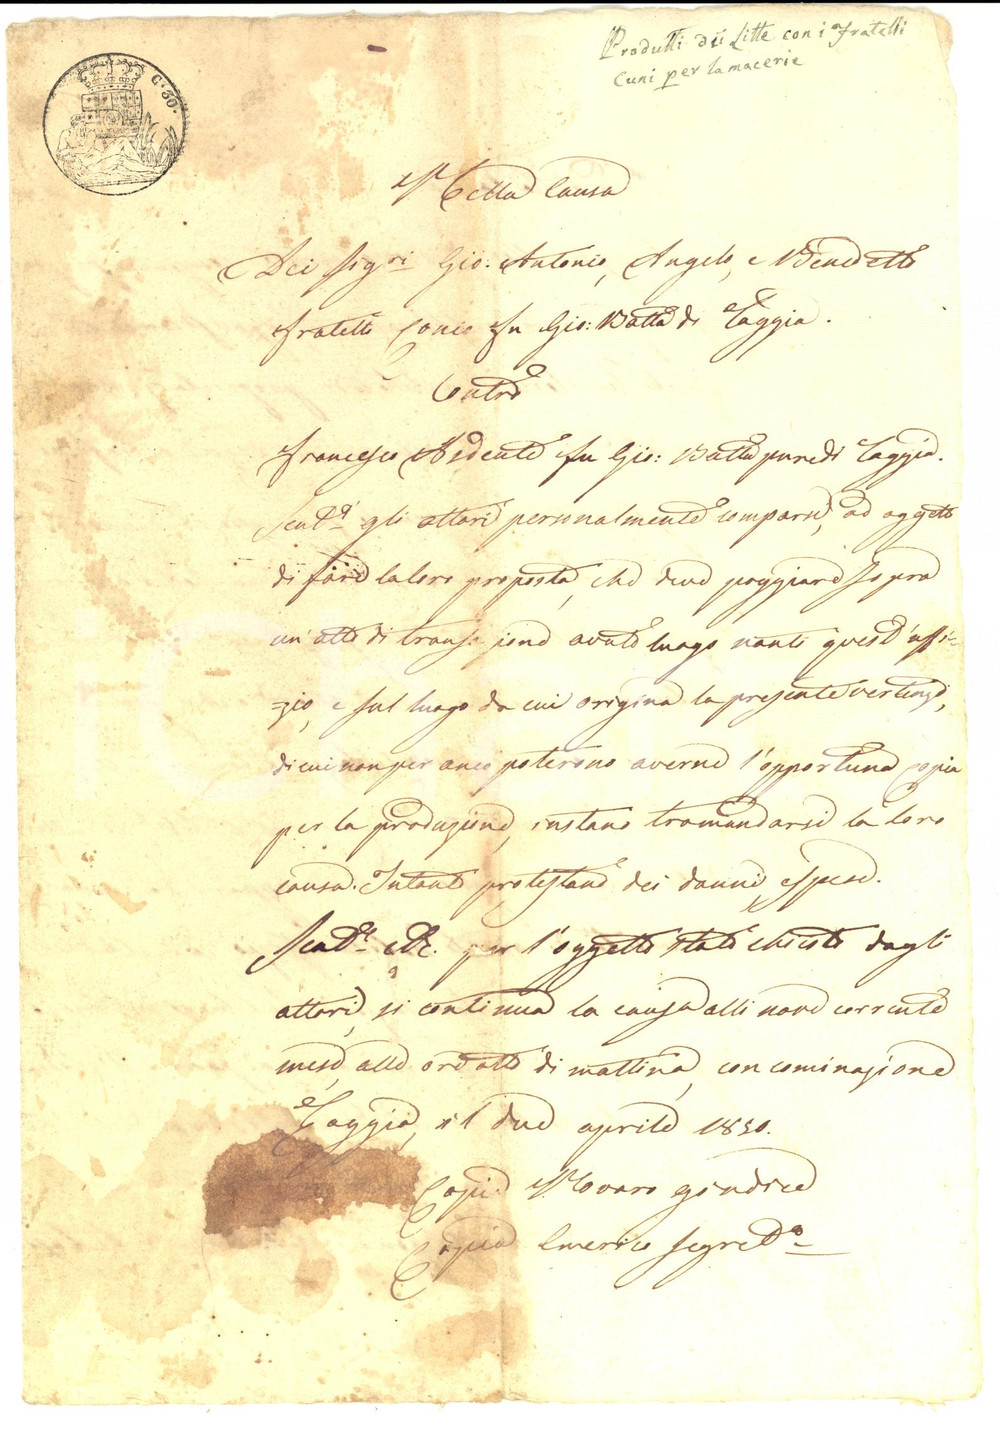 Produtti di Litte con i fratelli
Cuni per la macerie
C. 30.
Nella Causa
Dei Sig.ri Gio: Antonio, Angelo, e Benedetto
fratelli Conio fu Gio: Batta di Taggia.
Contro
Francesco Ardente fu Gio: Batta pure di Taggia.
gli attori personalmente comparsi, ad oggetto
di fare la loro proposta, che deve poggiare sopra
un'atto di transazione avuto luogo nanti quest'uffi=
=zio, e sul luogo da cui origina la presente vertenza,
di cui non per anco poterono averne l'opportuna copia
per la produzione, instano tramandarsi la loro
causa. Intanto protestano dei danni, e spese.
per l'oggetto stato chiesto dagli
attori, si continua la causa alli nove corrente
mese, alle ore otto di mattina, con cominazione
Taggia, il due aprile 1850.
Copia Novaro giudice
Copia Emerico Segret.o